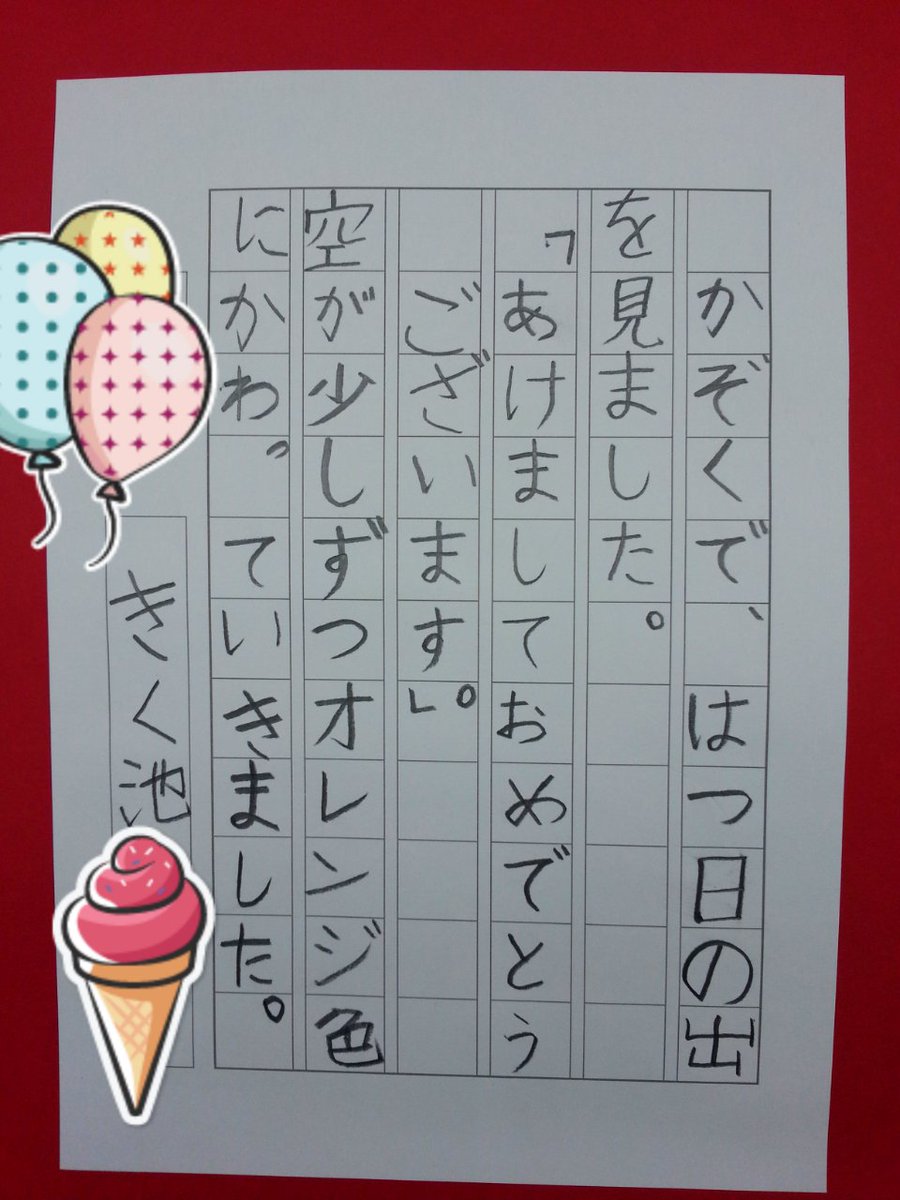 かぞくで、はつ日の出
を見ました。
「あけましておめでとう
ございます。」
空が少しずつオレンジ色
にかわっていきました。
きく池